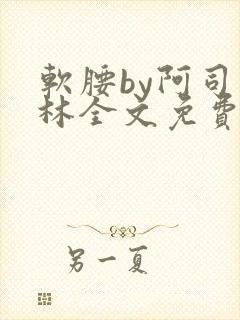 軟腰by阿司
林全文免費
另一夏